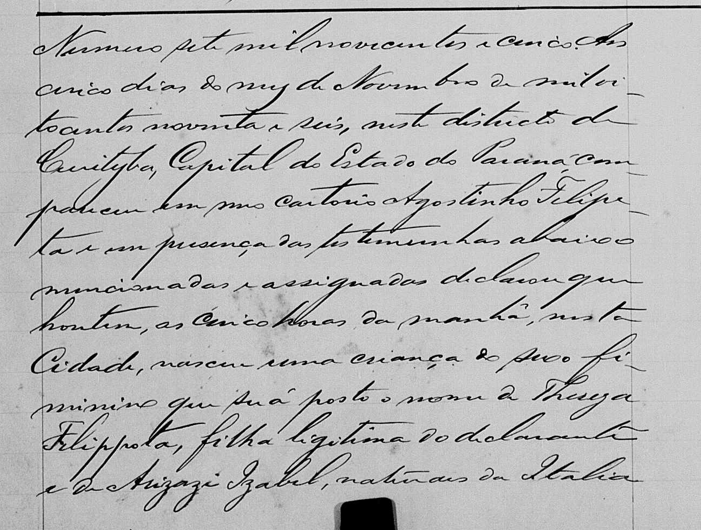 Numero sete mil novecentos e cinco. Aos
cinco dias do mez de Novembro de mil oi-
tocentos noventa e seis, neste districto de
Curityba, Capital do Estado do Paraná, com-
pareceu em meu cartorio Agostinho Filipe-
ta e em presença das testemunhas abaixo
mencionadas e assignadas declarou que
hontem, as cinco horas da manhã, nesta
Cidade, nasceu uma criança do sexo fe-
minino que será posto o nome de Thereza
Filippeta, filha legitima do declarante
e de Izabel, naturaes da Italia